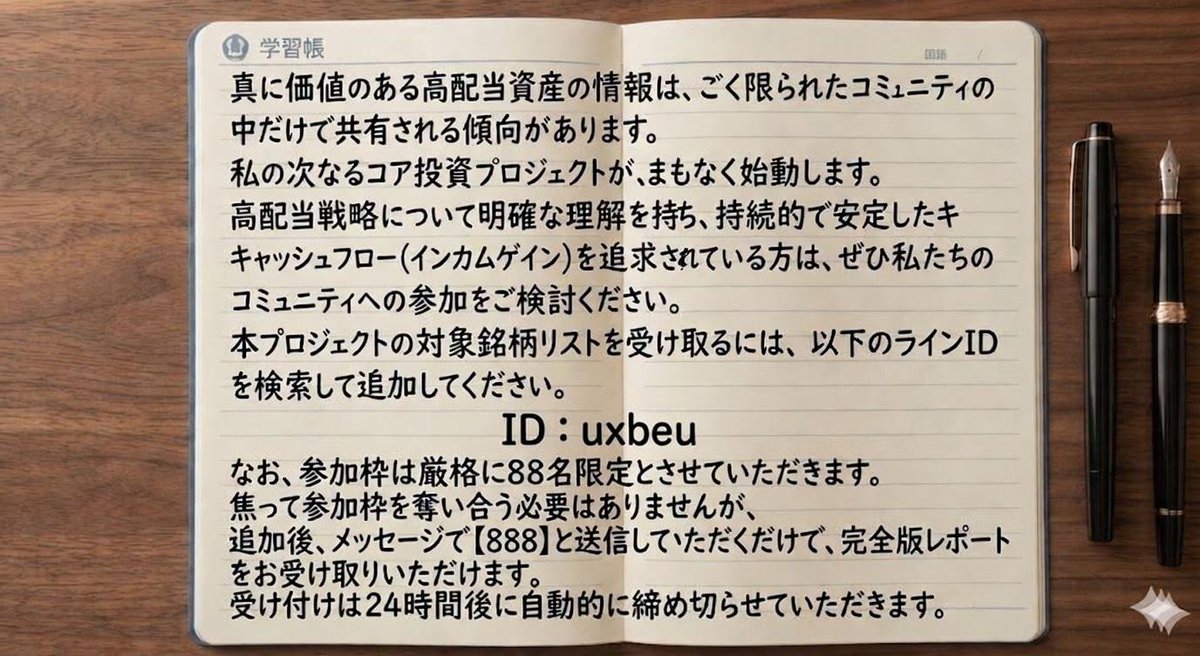 学習帳
国語 /
真に価値のある高配当資産の情報は、ごく限られたコミュニティの
中だけで共有される傾向があります。
私の次なるコア投資プロジェクトが、まもなく始動します。
高配当戦略について明確な理解を持ち、持続的で安定したキ
キャッシュフロー(インカムゲイン)を追求されている方は、ぜひ私たちの
コミュニティへの参加をご検討ください。
本プロジェクトの対象銘柄リストを受け取るには、以下のラインID
を検索して追加してください。
ID：uxbeu
なお、参加枠は厳格に88名限定とさせていただきます。
焦って参加枠を奪い合う必要はありませんが、
追加後、メッセージで【888】と送信していただくだけで、完全版レポート
をお受け取りいただけます。
受け付けは24時間後に自動的に締め切らせていただきます。